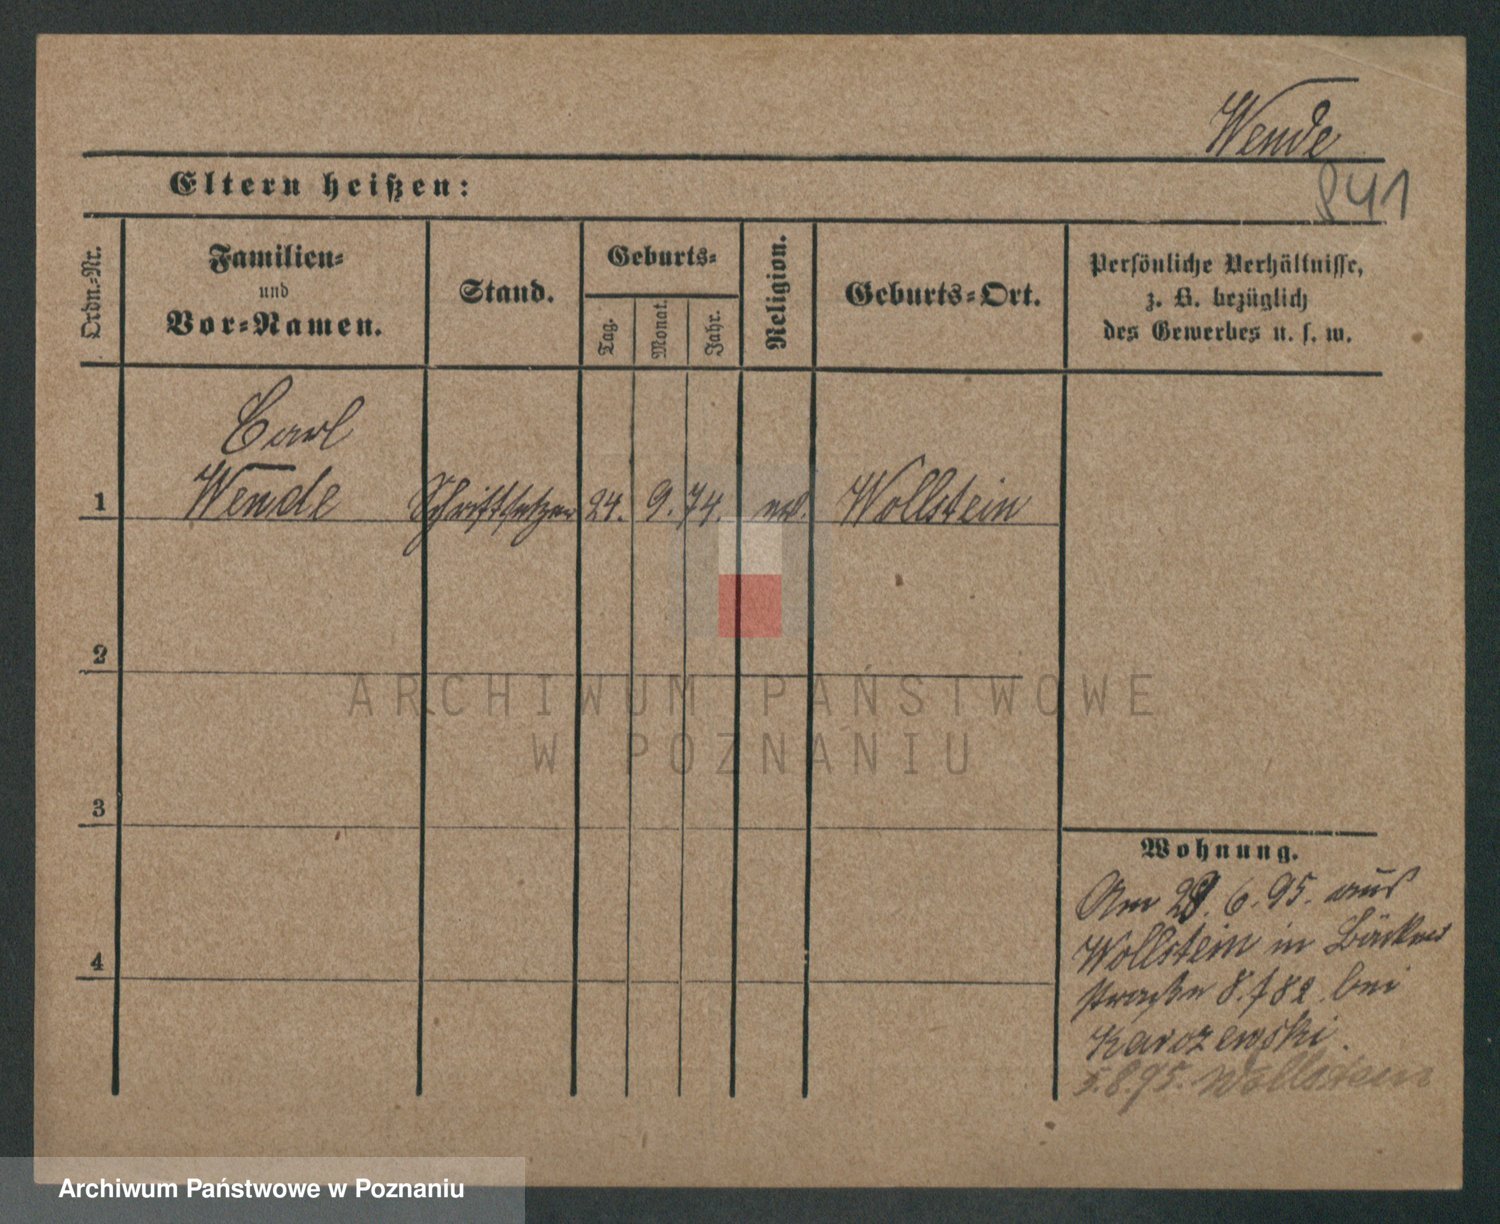 Wende
841
Eltern heißen:
Ordn.-Nr.
Familien-
und
Vor-Namen.
Stand.
Geburts-
Tag.
Monat.
Jahr.
Religion.
Geburts-Ort.
Persönliche Verhältnisse,
z. B. bezüglich
des Gewerbes u. s. w.
Carl
1 Wende Schriftsetzer 24. 9. 74. Wollstein
2
3
4
Wohnung.
Am 28. 6. 95. aus
Wollstein in Bäcker
straße 8. bei
Karozewski.
5.8.95. Wollstein
ARCHIWUM PAŃSTWOWE
W POZNANIU
Archiwum Państwowe w Poznaniu